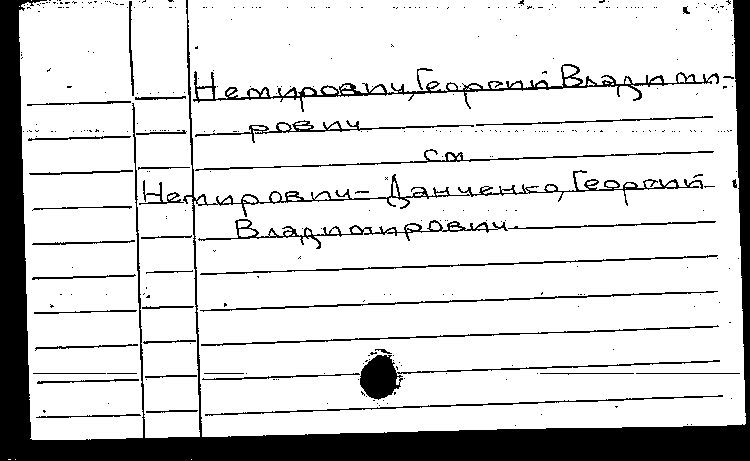 Немирович, Георгий Влади ми-
рович
см
Немирович-Данченко, Георгий
Владимирович.